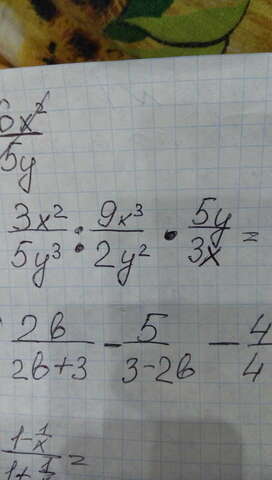 6x²/5y
3x²/5y³ : 9x³/2y² · 5y/3x =
2b/2b+3 - 5/3-2b - 4/4
1-1/x / 1+1/x =